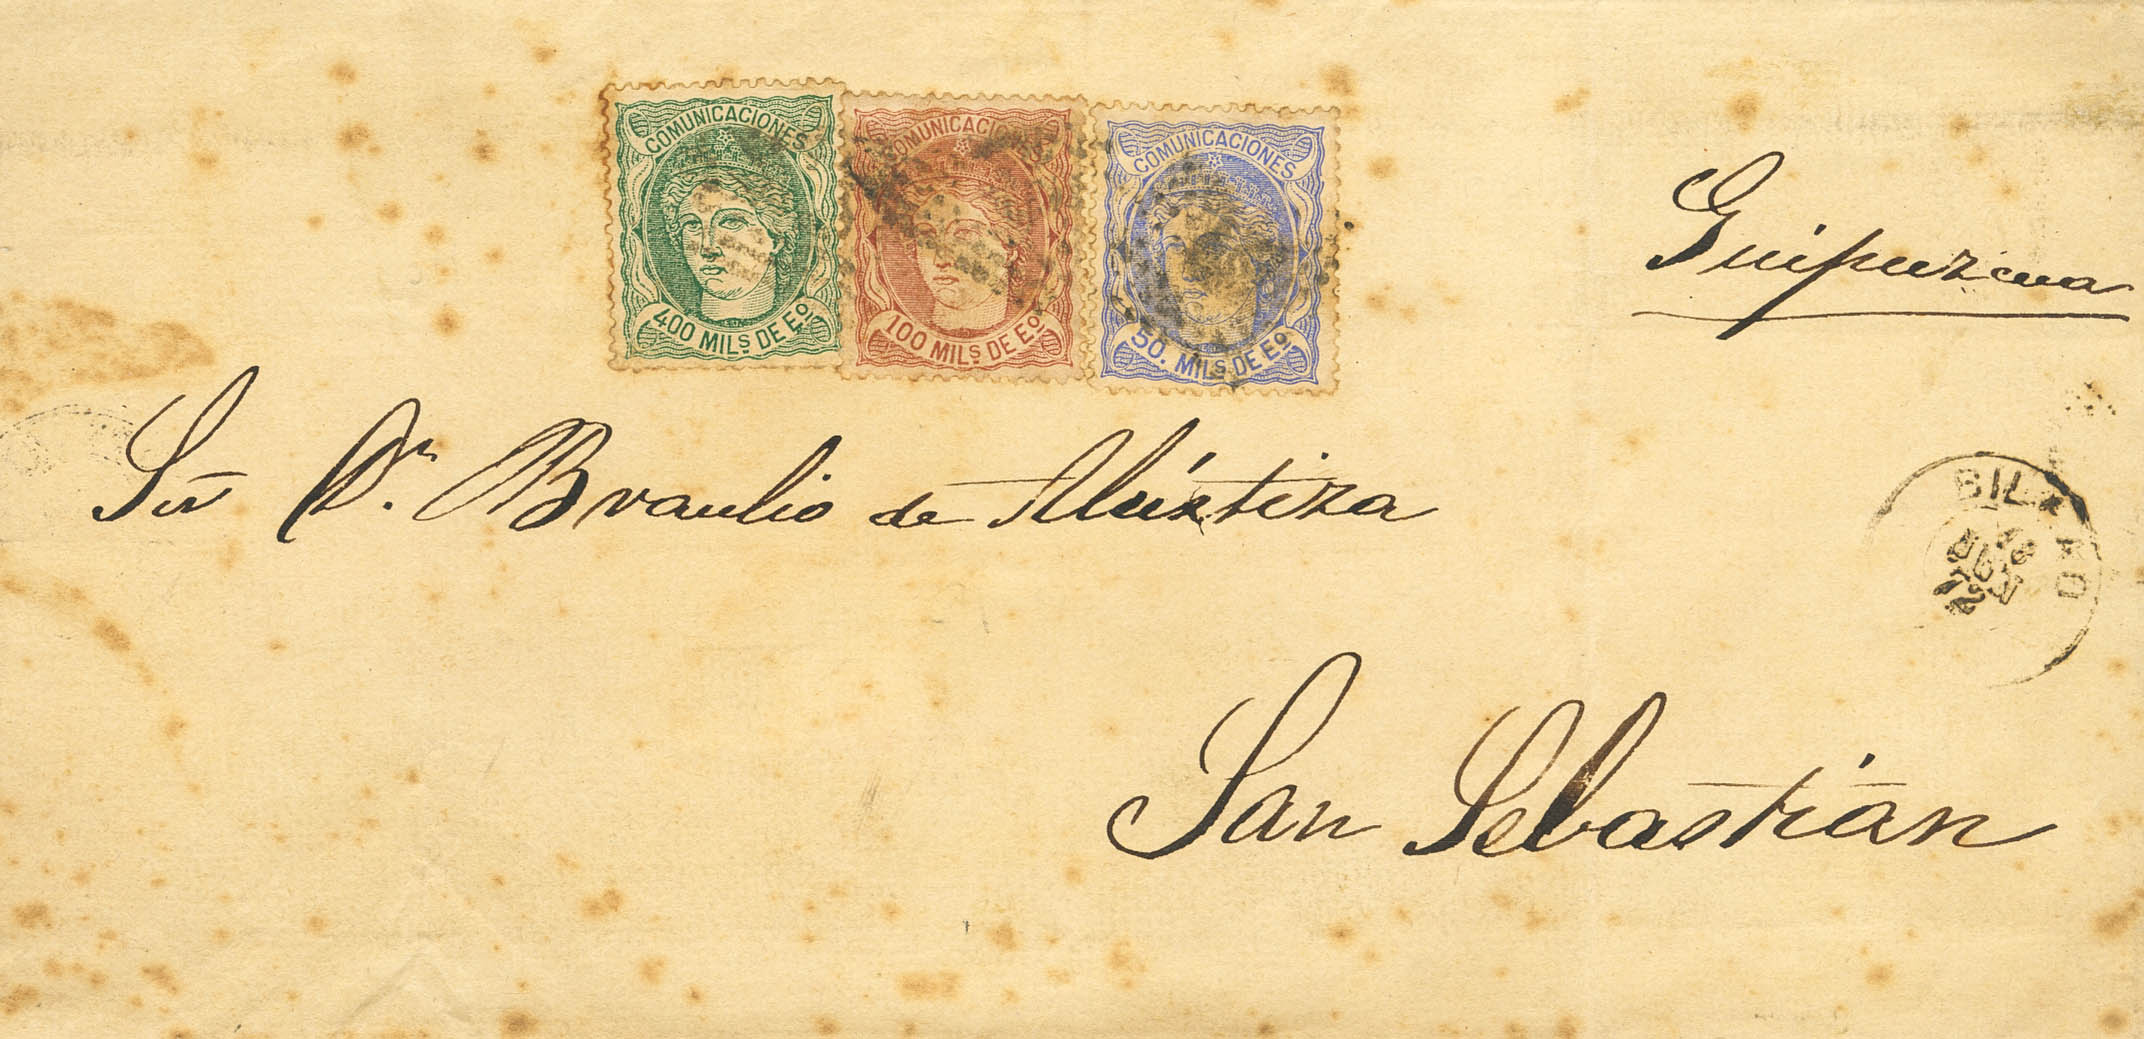 COMUNICACIONES
400 MILS DE Eº
COMUNICACIONES
100 MILS DE Eº
COMUNICACIONES
50. MILS DE Eº
Guipuzcua
Sr Dn. Braulio de Alústiza
BILBAO
18
JUN
72
San Sebastián